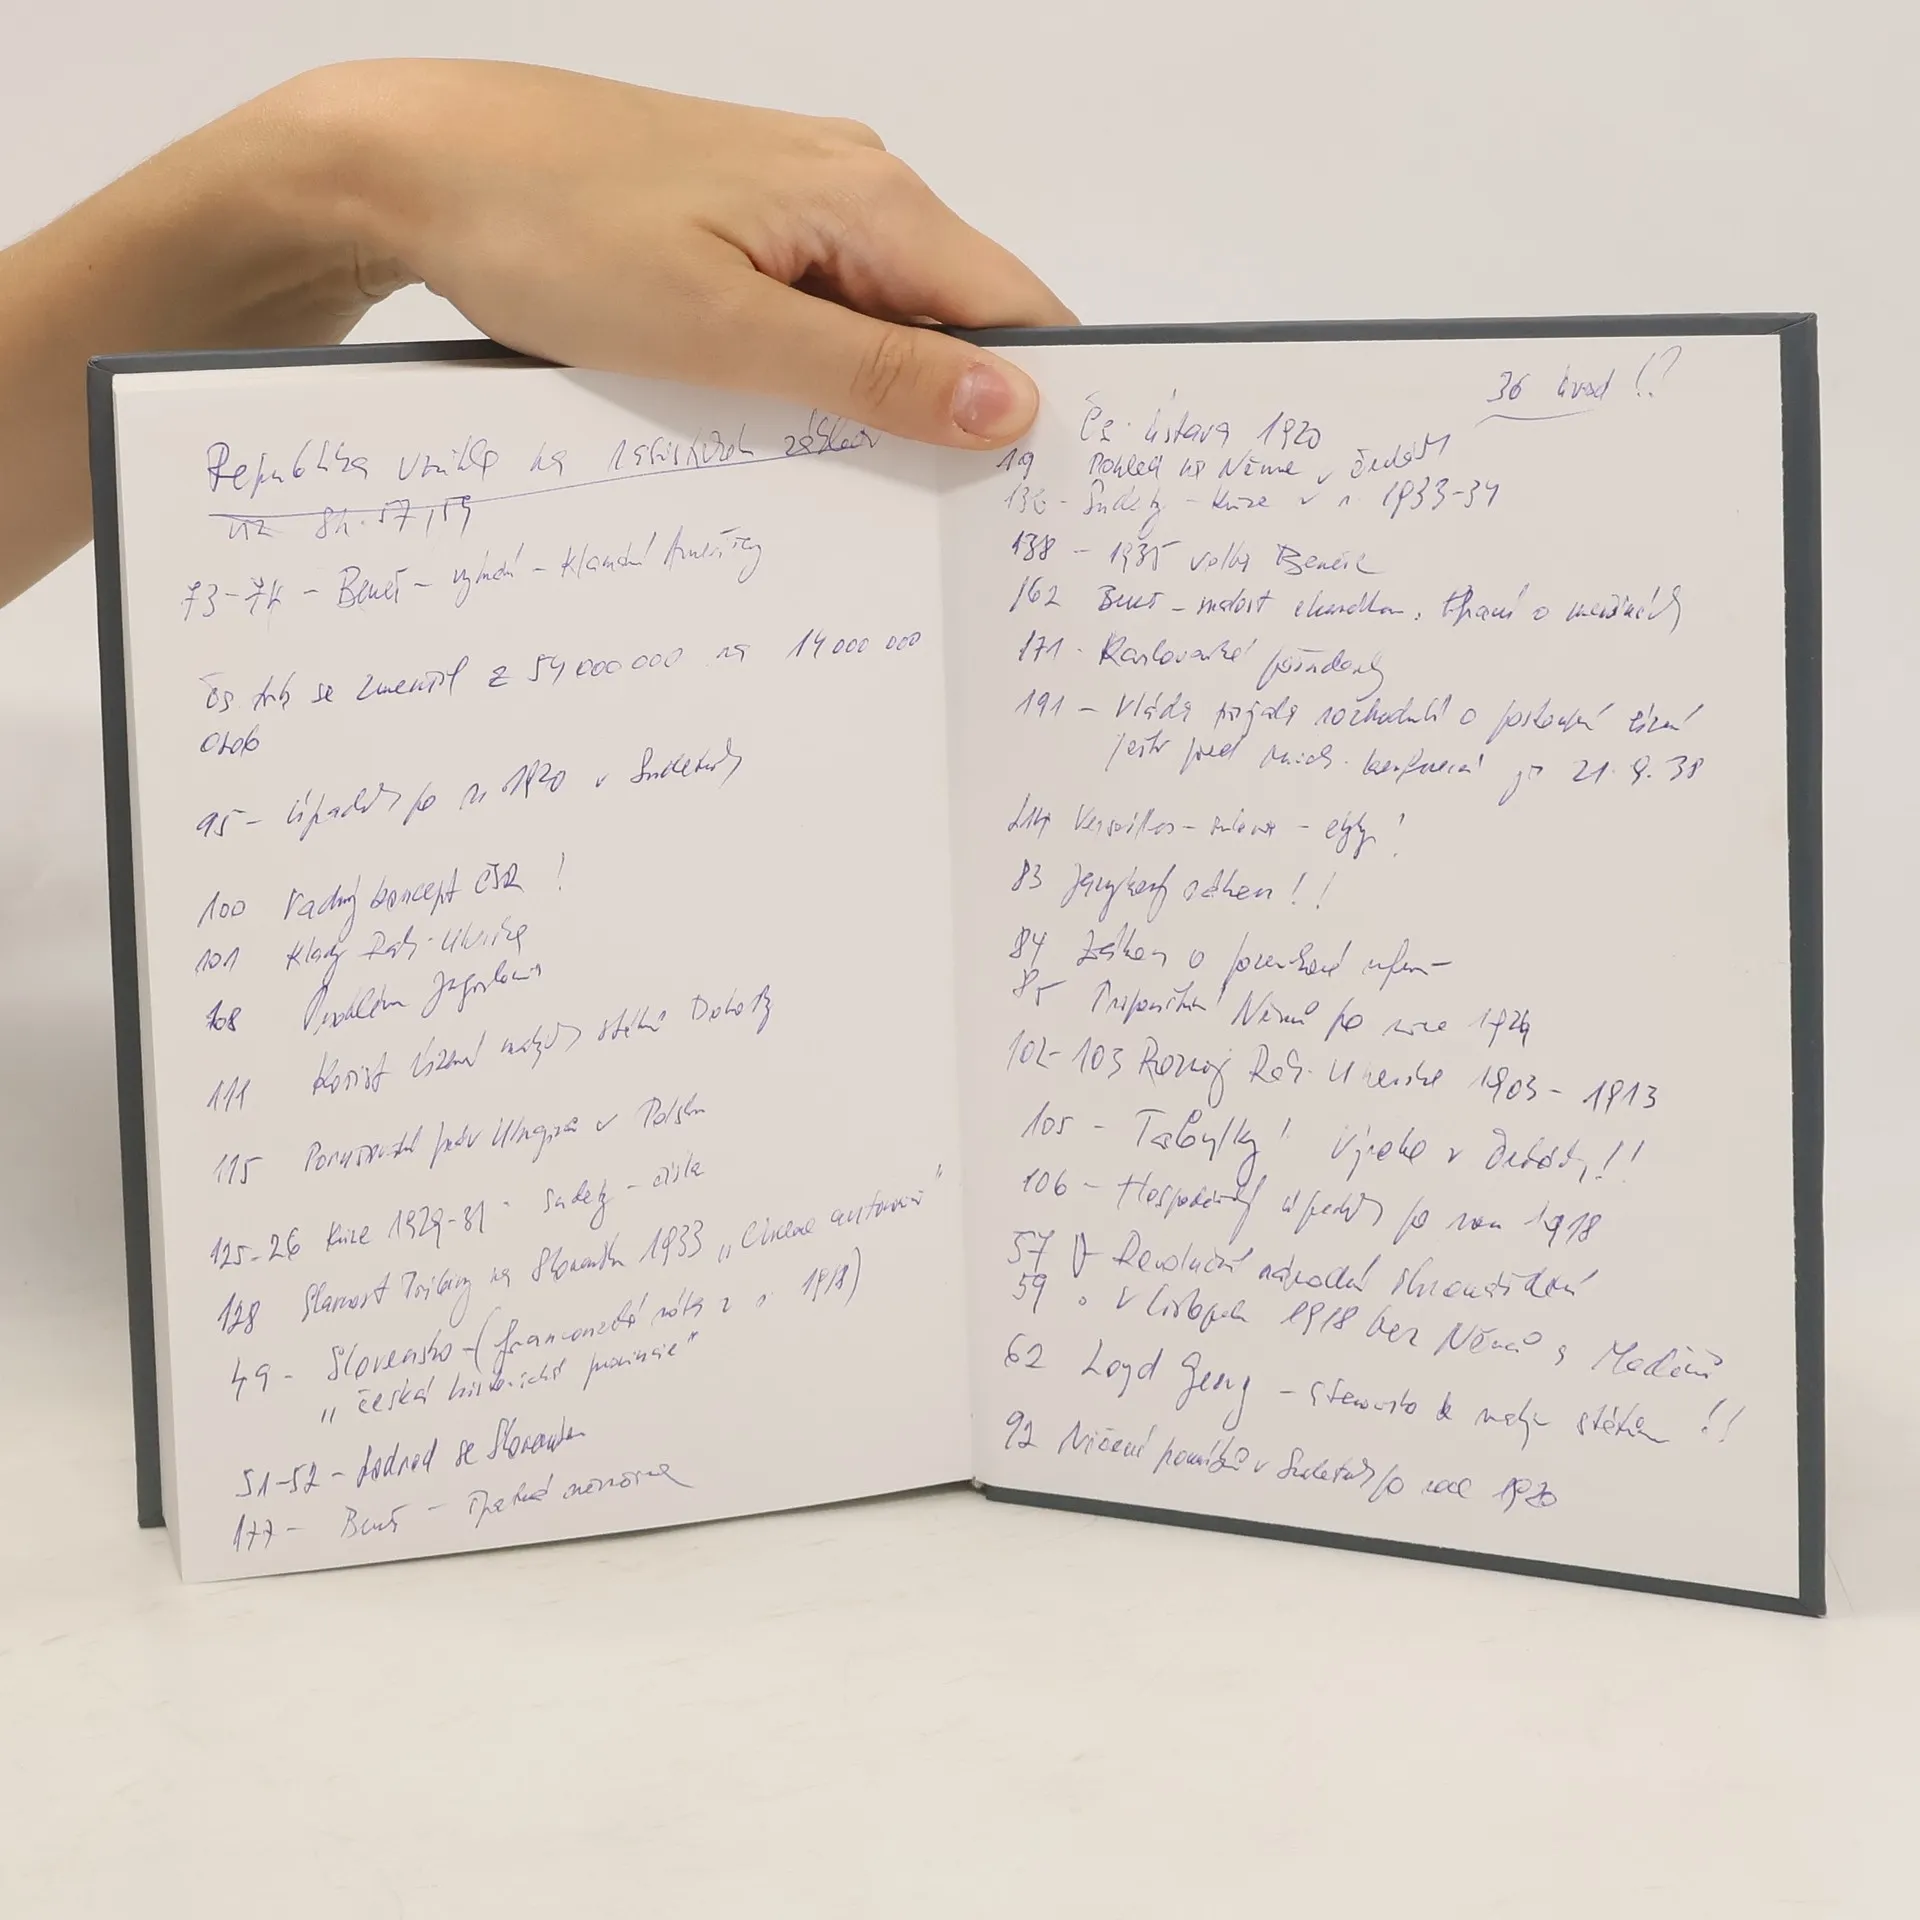 Republika vznikla na rasistických základech
viz str. 57, 59
73-74 - Beneš - vyhnání - klamání Ameriky
čs trh se zmenšil z 54 000 000 na 14 000 000
osob
95 - úpadky po r. 1920 v Sudetech
100 Vadný koncept ČSR !
101 Klady Rak. Uherska
108 Problém Jugoslavie
111 Korist území malých států Dohody
115 Porušování práv Ukrajinců v Polsku
125-26 Krize 1929-31 - Sudety - čísla
128 Slavnost Pribiny na Slovensku 1933 „Chceme autonomii"
49 - Slovensko - (francouzská nóta z r. 1918)
„česká historická provincie"
51-52 - podvod se Slovenskem
177 - Beneš - špatná
36 úvod !?
Čs. ústava 1920
19 Pohled na Němce v
136 - Sudety - krize v r. 1933-34
138 - 1935 volba Beneše
162 Beneš - malost charakteru,
171 - Karlovarské požadavky
191 - Vláda přijala rozhodnutí o postoupení území
ještě před mnich. konferencí již 21. 9. 38
214 Versailles - smlouva - chyby !
83 Jazykový zákon ! !
84 Zákon o pozemkové reform-
85 Němců po roce 1924
102-103 Rozvoj Rak. Uherska 1903 - 1913
105 - Tabulky ! Výroba v !!
106 - Hospodářský úpadek po roce 1918
57 Revoluční národní shromáždění
59 v listopadu 1918 bez Němců a Maďarů
62 Loyd Georg - stanovisko k malým státům !!
92 Ničení pomníků v Sudetech po roce 1920